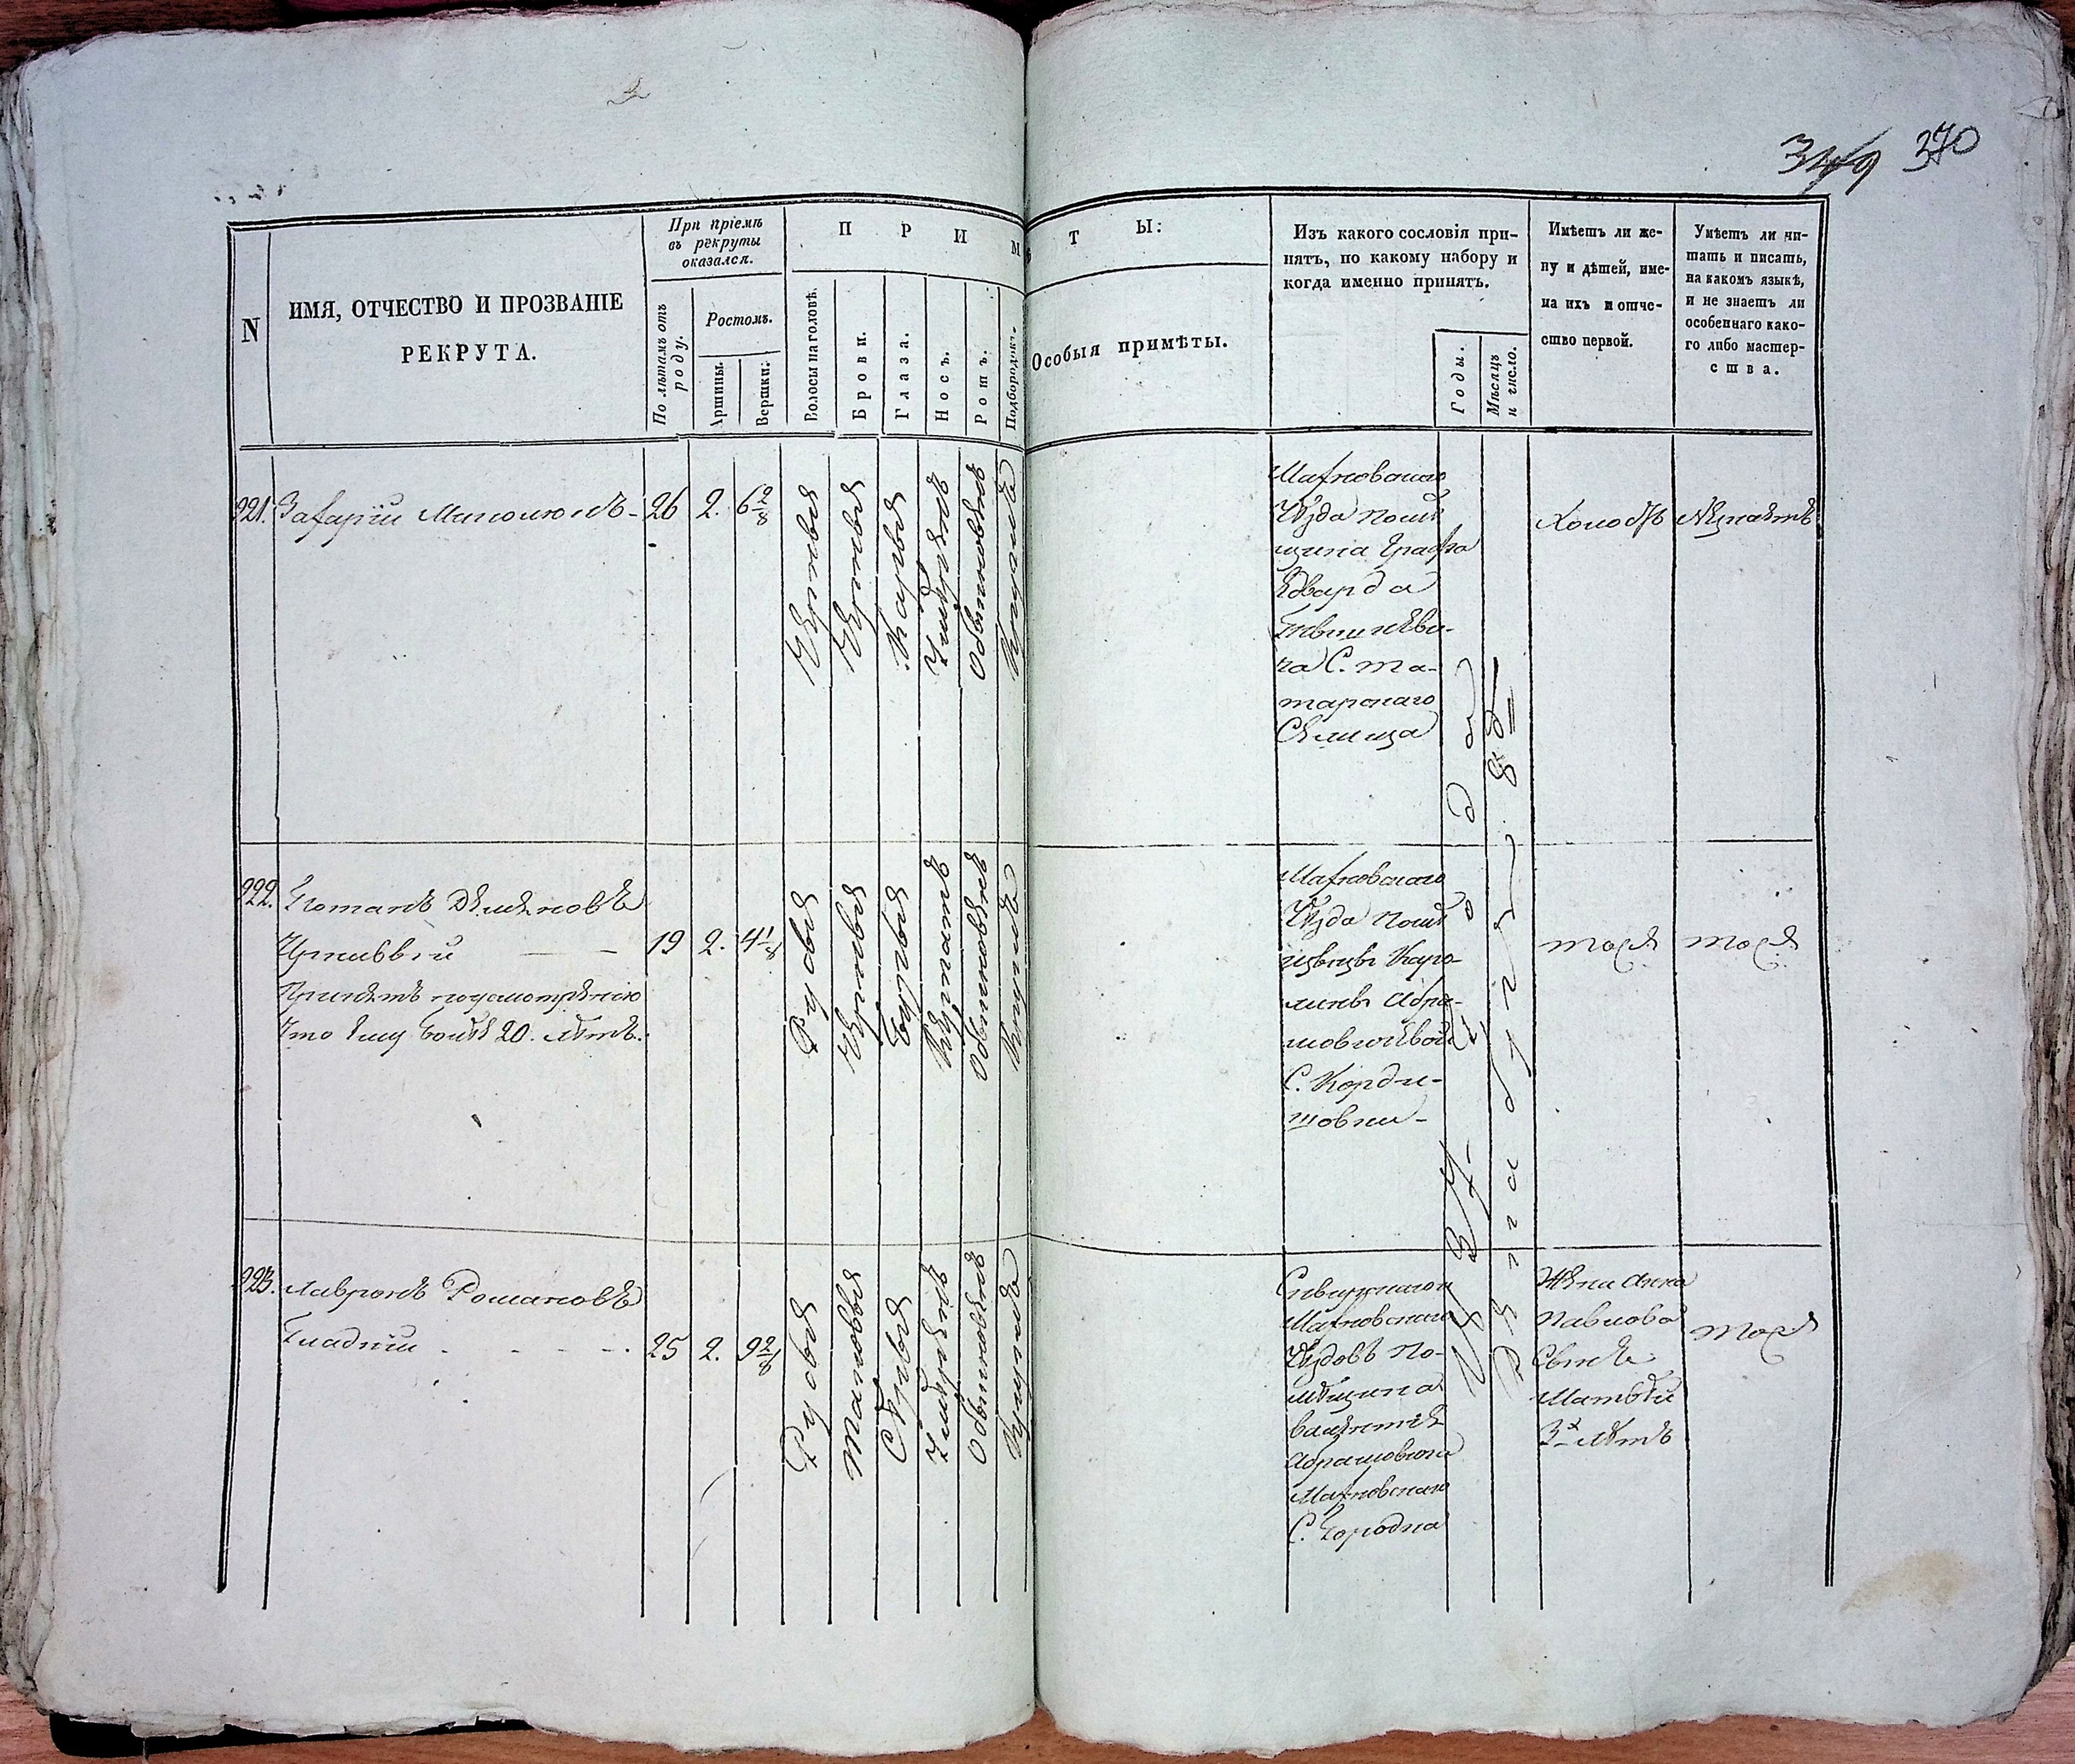 349 370
N
ИМЯ, ОТЧЕСТВО И ПРОЗВАНІЕ
РЕКРУТА.
При пріемѣ
въ рекруты
оказался.
По лѣтамъ отъ
роду.
Ростомъ.
Аршины.
Вершки.
П Р И М Ѣ Т Ы:
Волосы на головѣ.
Брови.
Глаза.
Носъ.
Ротъ.
Подбородокъ.
Особыя примѣты.
Изъ какого сословія при-
нятъ, по какому набору и
когда именно принятъ.
Годы.
Мѣсяцъ
и число.
Имѣетъ ли же-
ну и дѣтей, име-
на ихъ и отче-
ство первой.
Умѣетъ ли чи-
тать и писать,
на какомъ языкѣ,
и не знаетъ ли
особеннаго како-
го либо мастер-
ства.
221.
26
2.
6 2/8
Черныя
Черныя
Карыя
Умѣренъ
Обыкновенъ
Круглый
Махновскаго
Уѣзда помѣ
щика Графа
Едварда
ча С. Та-
тарскаго
Селища
Холостъ
Незнаетъ
222.
Потапъ Деменовъ
Принятъ по усмотренію
что ему болѣе 20. лѣтъ.
19
2.
4 1/8
Русыя
Черныя
Бурыя
Обыкновенъ
Махновскаго
Уѣзда помѣ
щицы Каро-
лины Абра-
мовичевой
С. Корди-
шовки
тоже
тоже
223.
Лавронъ Романовъ
Гладкій
25
2.
9 2/8
Русыя
Таковыя
Сѣрыя
Умѣренъ
Обыкновенъ
Сквирскаго и
Махновскаго
Уѣздовъ По-
мѣщика
Абрамовича
Махновскаго
С. Городка
Жена Анна
Павлова
Сынъ
Матвѣй
3х лѣтъ
тоже